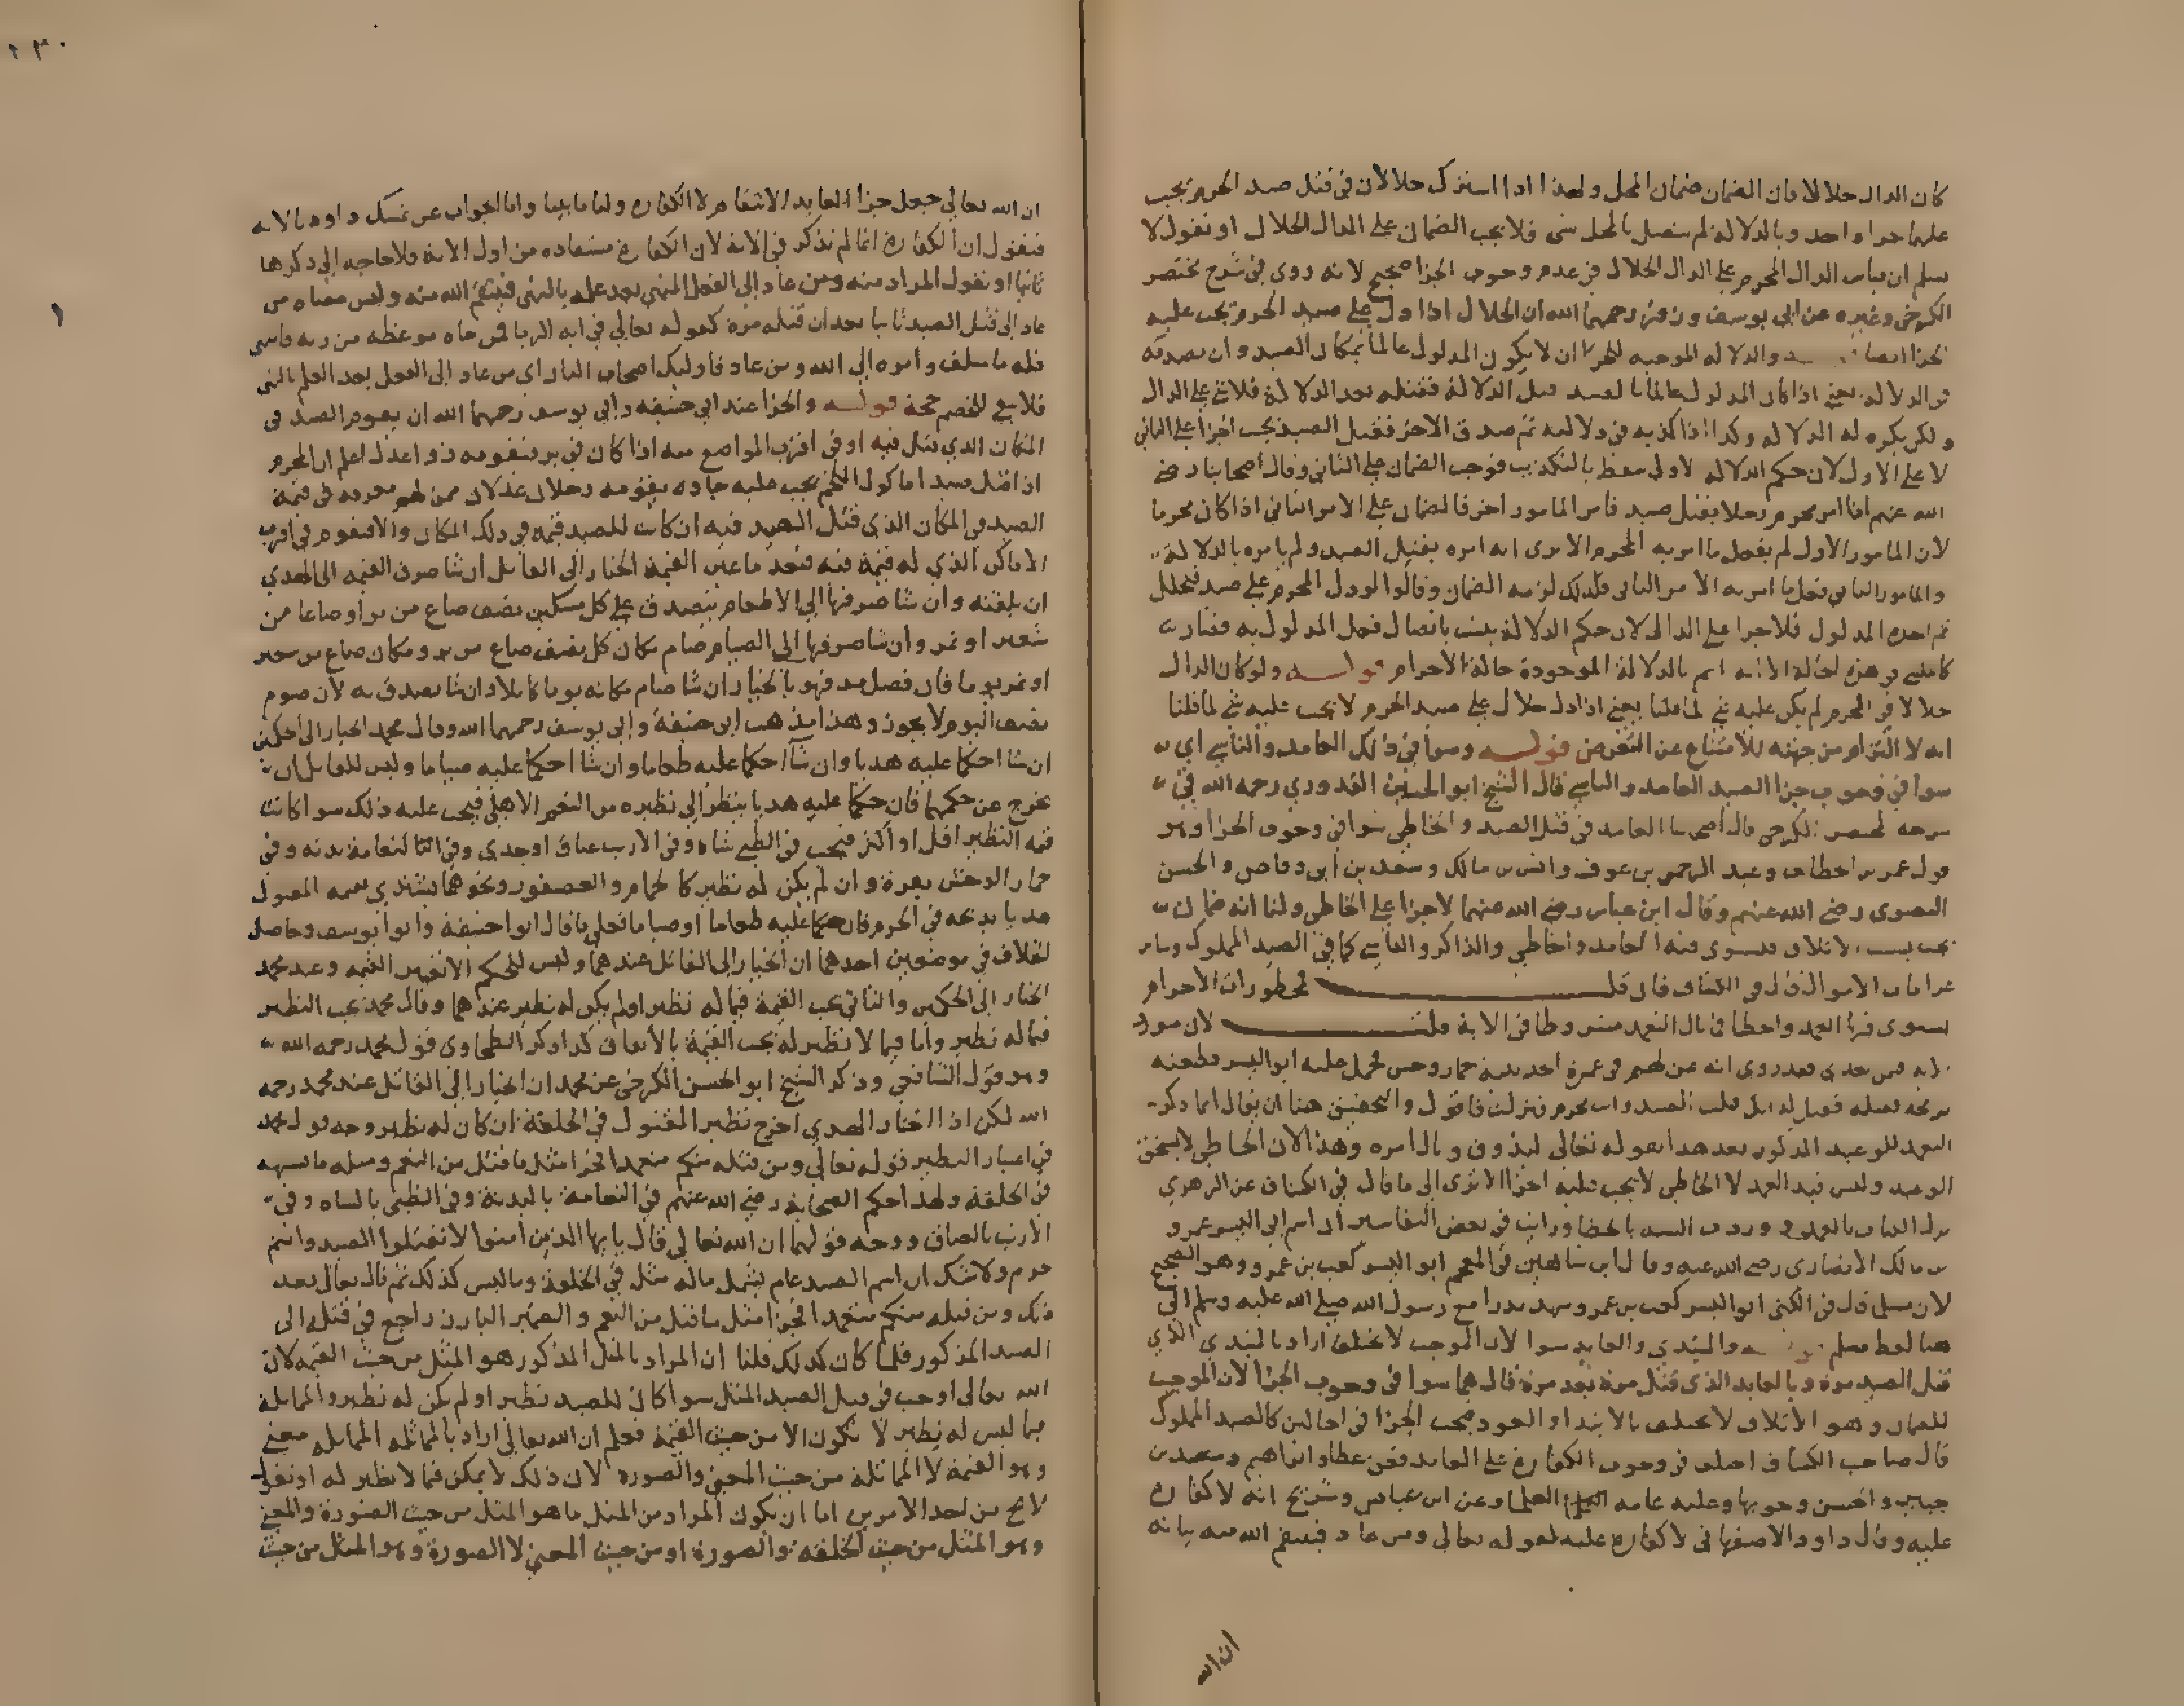 كان الدال حلالا فان الضمان ضمان المحل ولهذا اذا اشترك حلالان في قتل صيد الحرم يجب
عليهما جزاء واحد وبالدلالة لم يتصل بالمحل شي فلا يجب الضمان على الدال الحلال او نقول لا
نسلم ان قياس الدال المحرم على الدال الحلال في عدم وجوب الجزا صحيح لانه روى في شرح مختصر
الكرخي وغيره عن ابي يوسف وزفر رحمهما الله ان الحلال اذا دل على صيد الحرم يجب عليه
الجزا ايضا والدلالة الموجبه للجزا ان لا يكون المدلول عالما بمكان الصيد وان يصدقه
في الدلاله يعني اذا كان المدلول عالما بالصيد قبل الدلالة فقتله بعد الدلالة فلا شي على الدال
ولكن يكره له الدلاله وكذا اذا كذبه في دلالته ثم صدق الاخر فقتل الصيد يجب الجزا على الثاني
لا على الاول لان حكم الدلاله الاولى سقط بالتكذيب فوجب الضمان على الثاني وقال اصحابنا رضي
الله عنهم اذا امر محرم رجلا بقتل صيد فامر المامور اخر فالضمان على الامر الثاني اذا كان محرما
لان المامور الاول لم يفعل ما امر به المحرم الا ترى انه امره بقتل الصيد ولم يامره بالدلالة
والمامور الثاني فعل ما امر به الامر الثاني فلذلك لزمه الضمان وقالوا لو دل المحرم على صيد فتحلل
ثم اخذه المدلول فلا جزا على الدال لان حكم الدلالة يثبت باتصال فعل المدلول به فصارت
كاملة في هذه الحالة الا انه اثم بالدلالة الموجودة حالة الاحرام قوله ولو كان الدال
حلالا في الحرم لم يكن عليه شي لما قلنا يعني اذا دل حلال على صيد الحرم لا يجب عليه شي لما قلنا
انه لا التزام من جهته للامتناع عن التعرض قوله وسوا في ذلك العامد والناسي اي
سوا في وجوب جزا الصيد العامد والناسي قال الشيخ ابو الحسين القدوري رحمه الله في
شرحه لمختصر الكرخي قال اصحابنا العامد في قتل الصيد والخاطي سوا في وجوب الجزا وهو
قول عمر بن الخطاب وعبد الرحمن بن عوف وانس بن مالك وسعد بن ابي وقاص والحسن
البصرى رضي الله عنهم وقال ابن عباس رضي الله عنهما لا جزا على الخاطي ولنا انه ضمان
يجب بسبب الاتلاف فيستوى فيه العامد والخاطي والذاكر والناسي كما في الصيد المملوك وساير
غرامات الاموال قال في الكشاف فان قلت محظورات الاحرام
يستوى فيها العمد والخطا فما بال التعمد مشروطا في الاية قلت لان مورد
الاية فيمن تعدى فقد روى انه عن لهم في عمرة الحديبية حمار وحش فحمل عليه ابو اليسر فطعنه
برمحه فقتله فقيل له انك قتلت الصيد وانت محرم فنزلت فاقول والتحقيق هنا ان يقال انما ذكر
التعمد للوعيد المذكور بعد هذا بقوله تعالى ليذوق وبال امره وهذا لان الخاطي لا يستحق
الوعيد وليس قيد العمد لان الخاطي لا يجب عليه الجزا الا ترى الى ما قال في الكشاف عن الزهري
نزل الكتاب بالعمد ووردت السنة بالخطا ورايت في بعض التفاسير ان اسم ابي اليسر عمرو
بن مالك الانصاري رضي الله عنه وقال ابن شاهين في المعجم ابو اليسر كعب بن عمرو وهو الصحيح
لان مسلما قال في الكنى ابو اليسر كعب بن عمرو شهد بدرا مع رسول الله صلى الله عليه وسلم الى
هنا لفظ مسلم قوله والمبتدي والعايد سوا لان الموجب لا يختلف اراد بالمبتدي الذي
قتل الصيد مرة وبالعايد الذي قتل مرة بعد مرة قال هما سوا في وجوب الجزا لان الموجب
للضمان وهو الاتلاف لا يختلف بالابتدا او العود فيجب الجزا في الحالين كالصيد المملوك
قال صاحب الكشاف اختلف في وجوب الكفارة على العايد فعن عطاء وابراهيم وسعيد بن
جبير والحسن وجوبها وعليه عامه العلما وعن ابن عباس وشريح انه لا كفاره
عليه وقال داود الاصفهاني لا كفاره عليه لقوله تعالى ومن عاد فينتقم الله منه بيانه
ان الله
١٣٠
ان الله تعالى جعل جزا العايد الانتقام لا الكفاره ولنا ما بينا واما الجواب عن تمسك داود بالايه
فنقول ان الكفارة انما لم تذكر في الاية لان الكفارة مستفاده من اول الاية فلا حاجه الى ذكرها
ثانيا او نقول المراد منه ومن عاد الى الفعل المنهي بعد علمه بالنهي فينتقم الله منه وليس معناه من
عاد الى قتل الصيد ثانيا بعد ان قتله مرة كقوله تعالى في اية الربا فمن جاه موعظه من ربه فانتهى
فله ما سلف وامره الى الله ومن عاد فاوليك اصحاب النار اي من عاد الى الفعل بعد العلم بالنهي
فلا يبقى للخصم حجة قوله والجزا عند ابي حنيفه وابي يوسف رحمهما الله ان يقوم الصيد في
المكان الذي قتل فيه او في اقرب المواضع منه اذا كان في بر فيقومه ذوا عدل اعلم ان المحرم
اذا قتل صيدا ماكول اللحم يجب عليه جزاوه يقومه رجلان عدلان ممن لهم معرفه في قيمة
الصيد في المكان الذي قتل الصيد فيه ان كانت للصيد قيمة في ذلك المكان والا فيقوم في اقرب
الاماكن الذي له قيمة فيه فبعد ما عين القيمة الخيار الى القاتل ان شا صرف القيمه الى الهدي
ان بلغته وان شا صرفها الى الاطعام يتصدق على كل مسكين نصف صاع من بر او صاعا من
شعير او تمر وان شا صرفها الى الصيام صام مكان كل نصف صاع من بر ومكان صاع من شعير
او تمر يوما فان فضل مد فهو بالخيار ان شا صام مكانه يوما كاملا وان شا تصدق به لان صوم
نصف اليوم لا يجوز وهذا مذهب ابي حنيفة وابي يوسف رحمهما الله وقال محمد الخيار الى الحكمين
ان شا احكما عليه هديا وان شآ احكما عليه طعاما وان شا احكما عليه صياما وليس للقاتل ان
يخرج عن حكمهما فان حكما عليه هديا ينظر الى نظيره من النعم الاهلي فيجب عليه ذلك سوا كانت
قيمه النظير اقل او اكثر فيجب في الظبي شاة وفي الارنب عناق او جدي وفي النعامة بدنه وفي
حمار الوحش بقرة وان لم يكن له نظير كالحمام والعصفور ونحوهما يشتري بقيمه المقتول
هديا يذبحه في الحرم فان حكما عليه طعاما او صياما فعلى ما قال ابو حنيفة وابو يوسف وحاصل
الخلاف في موضعين احدهما ان الخيار الى القاتل عندهما وليس للحكم الا تقدير القيمه وعند محمد
الخيار الى الحكمين والثاني يجب القيمة فيما له نظير او لم يكن له نظير عندهما وقال محمد يجب النظير
فيما له نظير واما فيما لا نظير له يجب القيمة بالاتفاق كذا ذكر الطحاوي قول محمد رحمه الله
وهو قول الشافعي وذكر الشيخ ابو الحسن الكرخي عن محمد ان الخيار الى القاتل عند محمد رحمه
الله لكن اذا اختار الهدي اخرج نظير المقتول في الخلقة ان كان له نظير وجه قول محمد
في اعتبار النظير قوله تعالى ومن قتله منكم متعمدا فجزا مثل ما قتل من النعم ومثله ما يشبهه
في الخلقة ولهذا حكم الصحابة رضي الله عنهم في النعامة بالبدنة وفي الظبي بالشاه وفي
الارنب بالعناق ووجه قولهما ان الله تعالى قال يا يها الذين امنوا لا تقتلوا الصيد وانتم
حرم ولا شك ان اسم الصيد عام يشمل ماله مثل في الخلقة وما ليس كذلك ثم قال تعالى بعد
ذلك ومن قتله منكم متعمدا فجزا مثل ما قتل من النعم والضمير البارز راجع في قتله الى
الصيد المذكور فلما كان كذلك قلنا ان المراد بالمثل المذكور هو المثل من حيث القيمه لان
الله تعالى اوجب في قتل الصيد المثل سوا كان للصيد نظير او لم يكن له نظير والمماثلة
فيما ليس له نظير لا تكون الا من حيث القيمة فعلم ان الله تعالى اراد بالمماثله المماثله معنى
وهو القيمة لا المماثلة من حيث المعنى والصوره لان ذلك لا يمكن فيما لا نظير له او نقول
لا يخ من احد الامرين اما ان يكون المراد من المثل ما هو المثل من حيث الصورة والمعنى
وهو المثل من حيث الخلقه والصورة او من حيث المعنى لا الصورة وهو المثل من حيث